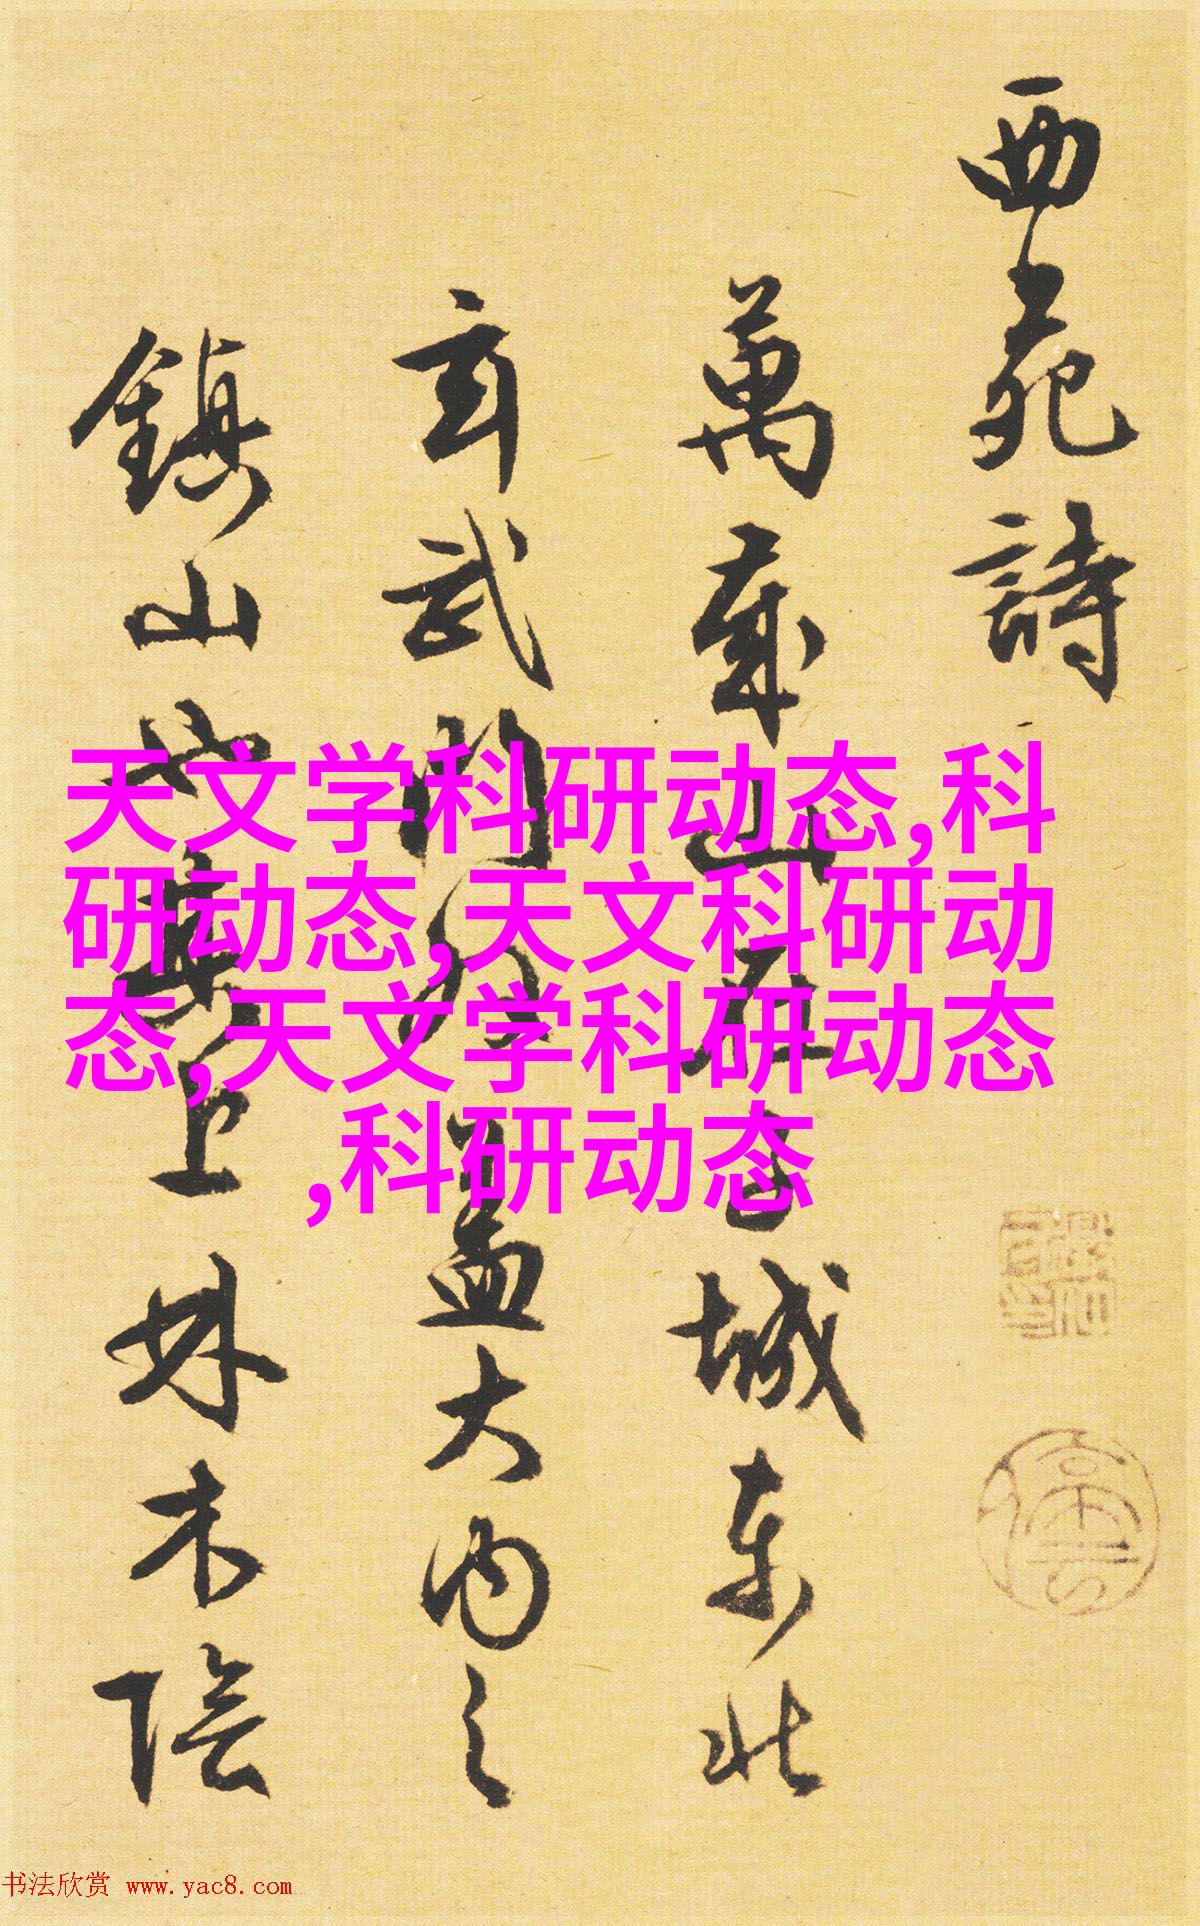 西苑詩
萬歲山在子城東北
玄武門外盖大内之
鎮山也其上林木陰
天文学科研动态,科
研动态,天文科研动
态,天文学科研动态
,科研动态
书法欣赏 www.yac8.com